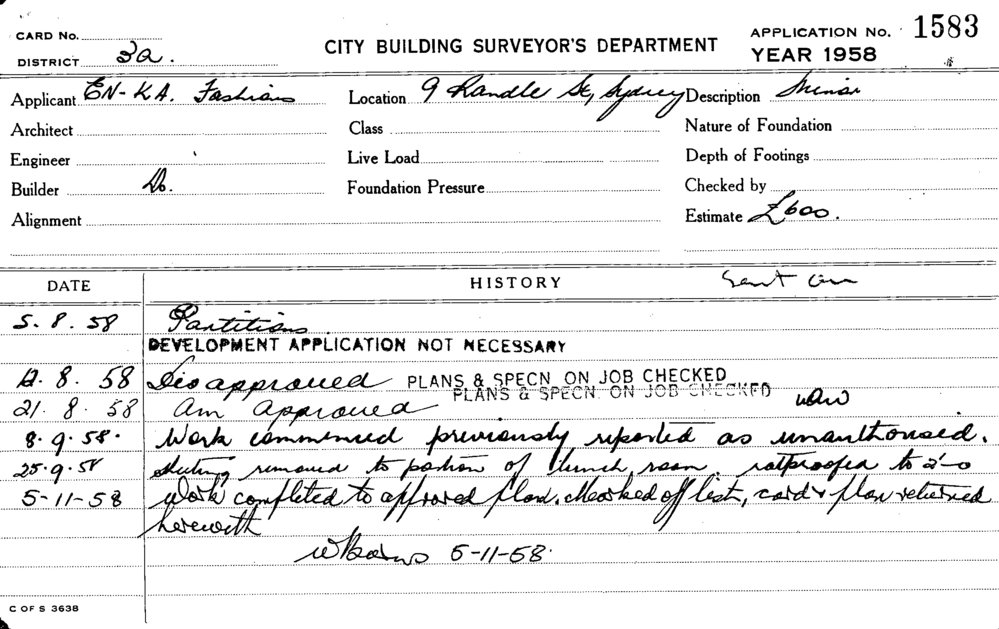 CARD No.
DISTRICT 3a.
CITY BUILDING SURVEYOR'S DEPARTMENT
APPLICATION No. 1583
YEAR 1958
Applicant EN-KA. Fashions Location 9 Randle St, Sydney Description Minor
Architect Class Nature of Foundation
Engineer Live Load Depth of Footings
Builder Do. Foundation Pressure Checked by
Alignment Estimate £600.
DATE HISTORY
5. 8. 58 Partitions
DEVELOPMENT APPLICATION NOT NECESSARY
12. 8. 58 Disapproved PLANS & SPECN. ON JOB CHECKED
PLANS & SPECN. ON JOB CHECKED
21. 8. 58 Am approved
8. 9. 58. Work commenced previously reported as unauthorised.
25. 9. 58 removed to portion of lunch room. ratproofed to 2'-0
5-11-58 Work completed to approved plan. Marked off list, card & plan returned
herewith
5-11-58.
C OF S 3638